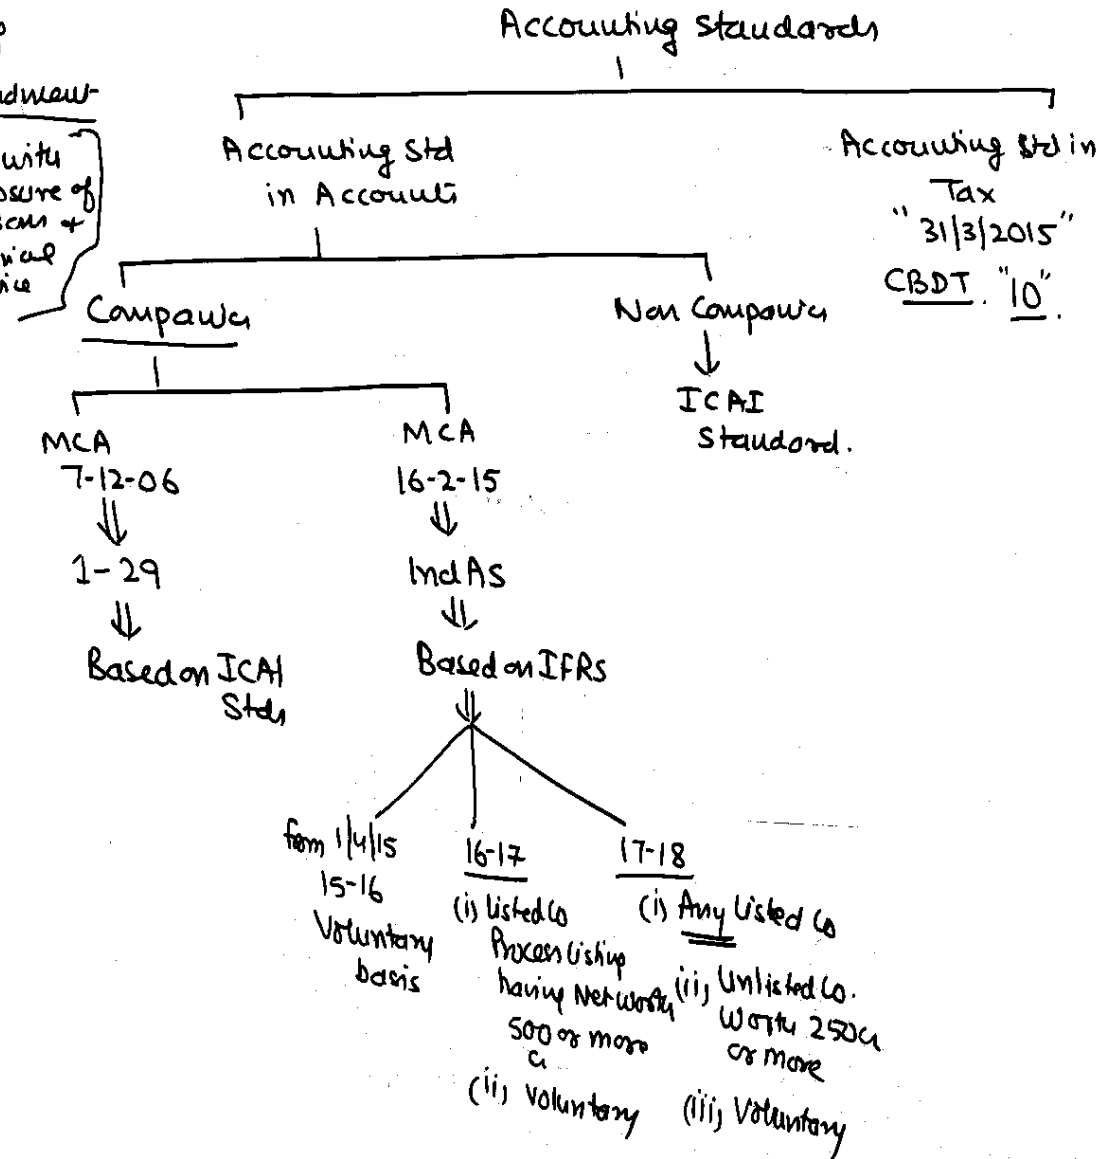 Accounting Standards
Accounting Std
in Accounts
Accounting Std in
Tax
"31/3/2015"
CBDT. "10".
with
osure of
Companies
Non Companies
ICAI
Standard.
MCA
7-12-06
1-29
Based on ICAI
Stds
MCA
16-2-15
Ind AS
Based on IFRS
from 1/4/15
15-16
Voluntary
basis
16-17
(i) Listed Co
Process Listing
having Net worth
500 or more
Cr
(ii) Voluntary
17-18
(i) Any Listed Co
(ii) Unlisted Co.
Worth 250 Cr
or more
(iii) Voluntary